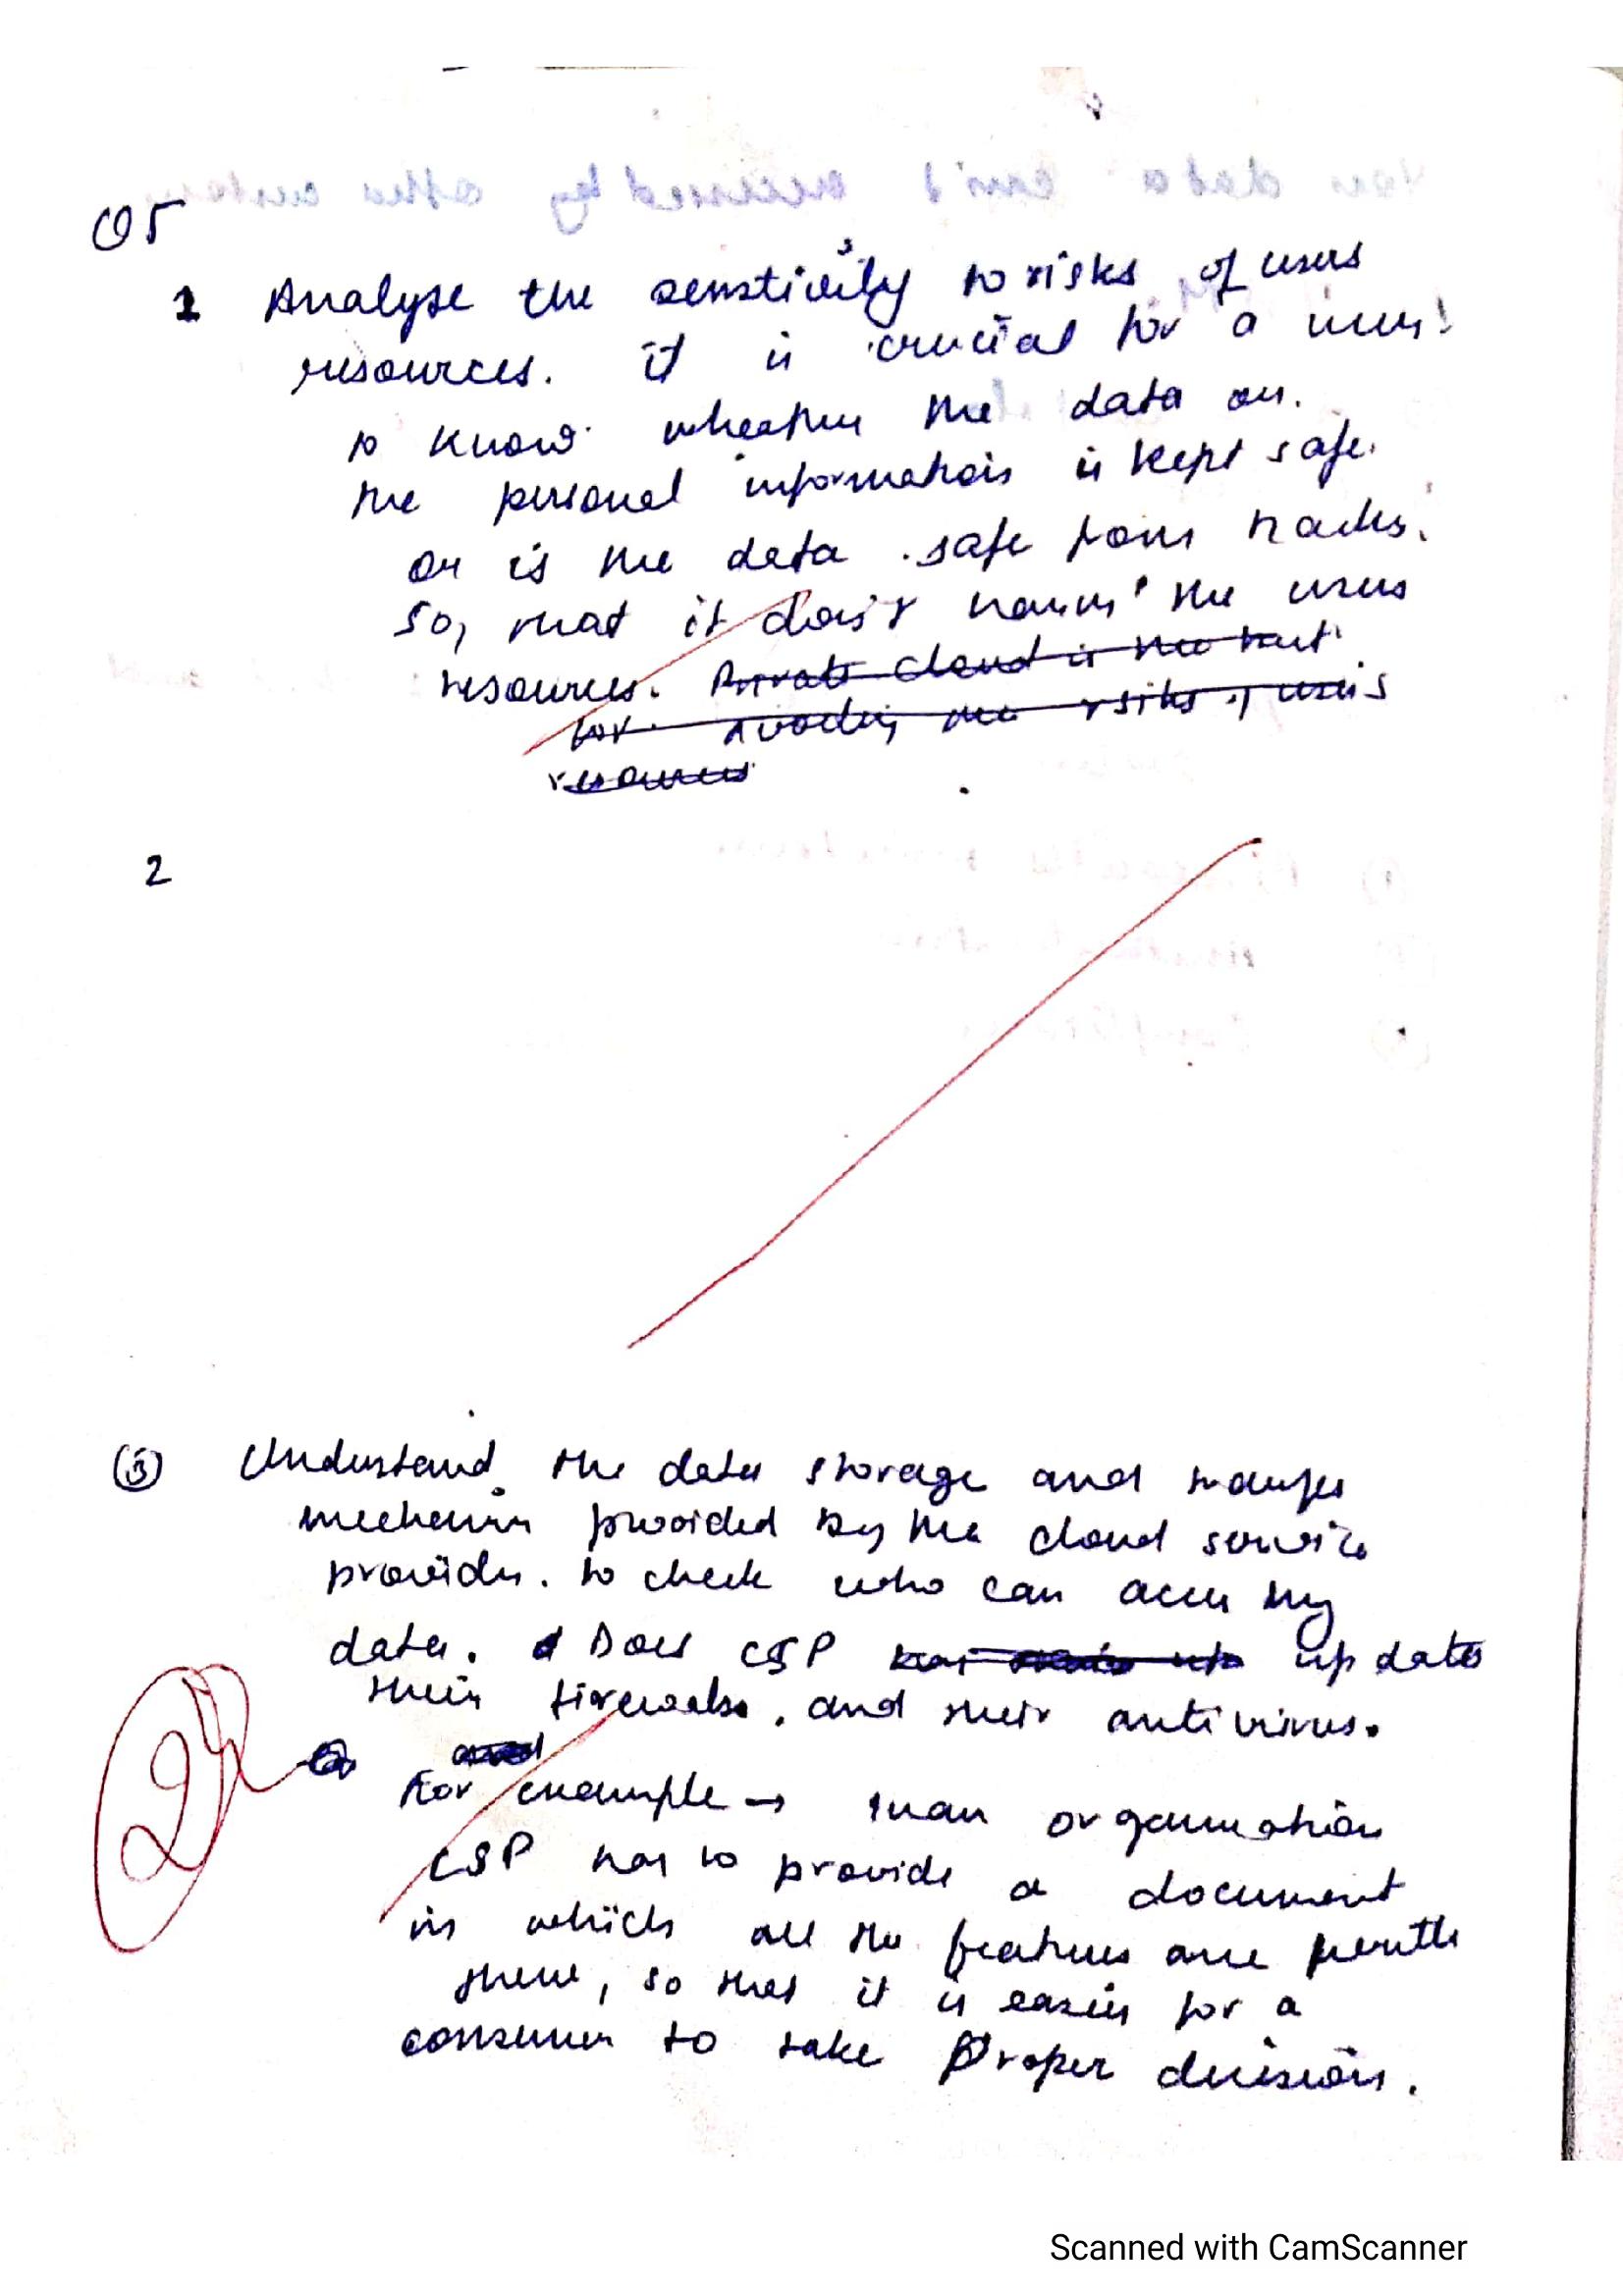 Q5
1 Analyse the senstivity to risks of users
resources. it is crucial for a user!
to know wheather the data or
the personal information is kept safe.
or is the data safe from hacks.
so, that it does't harm the users
resources. Private cloud is the best
for avoiding the rsiks of users
resources
2
(3) Understand the data storage and transfer
mechenism provided by the cloud service
provider. to check who can access my
data. Does CSP update
their firewalls. and their antivirus.
and
For example → an organisation
CSP has to provide a document
in which all the features are
there, so that it is easier for a
consumer to take proper decision.
2
Scanned with CamScanner